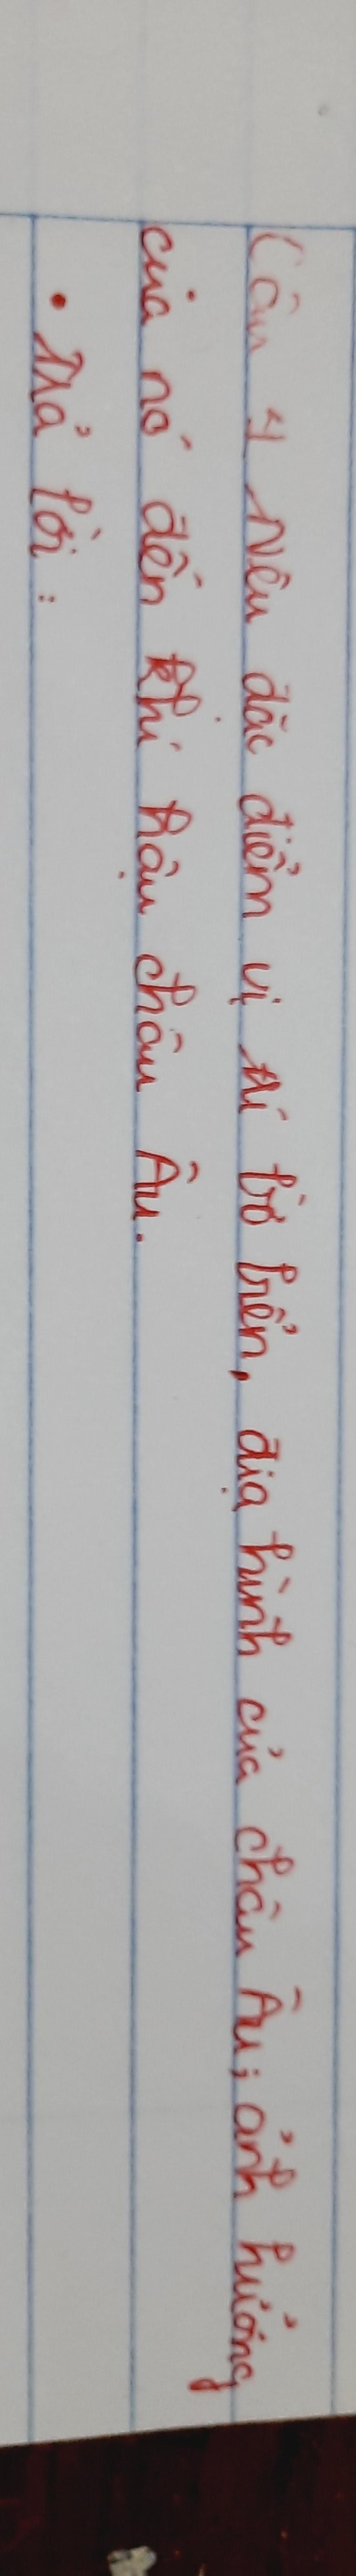 Câu 4 Nêu đặc điểm vị trí bờ biển, địa hình của châu Âu; ảnh hưởng
của nó đến khí hậu châu Âu.
• Trả lời: